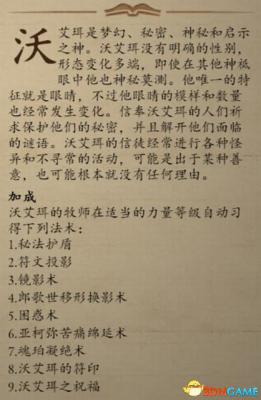 沃艾珥是梦幻、秘密、神秘和启示
之神。沃艾珥没有明确的性别,
形态变化多端,即使在其他神祇
眼中他也神秘莫测。他唯一的特
征就是眼睛,不过他眼睛的模样和数量
也经常发生变化。信奉沃艾珥的人们祈
求保护他们的秘密,并且解开他们面临
的谜语。沃艾珥的信徒经常进行各种怪
异和不寻常的活动,可能是出于某种善
意,也可能根本就没有任何理由。
加成
沃艾珥的牧师在适当的力量等级自动习
得下列法术:
1.秘法护盾
2.符文投影
3.镜影术
4.郎歌世移形换影术
5.困惑术
6.亚柯弥苦痛绵延术
7.魂珀凝绝术
8.沃艾珥的符印
9.沃艾珥之祝福
3DMGAME